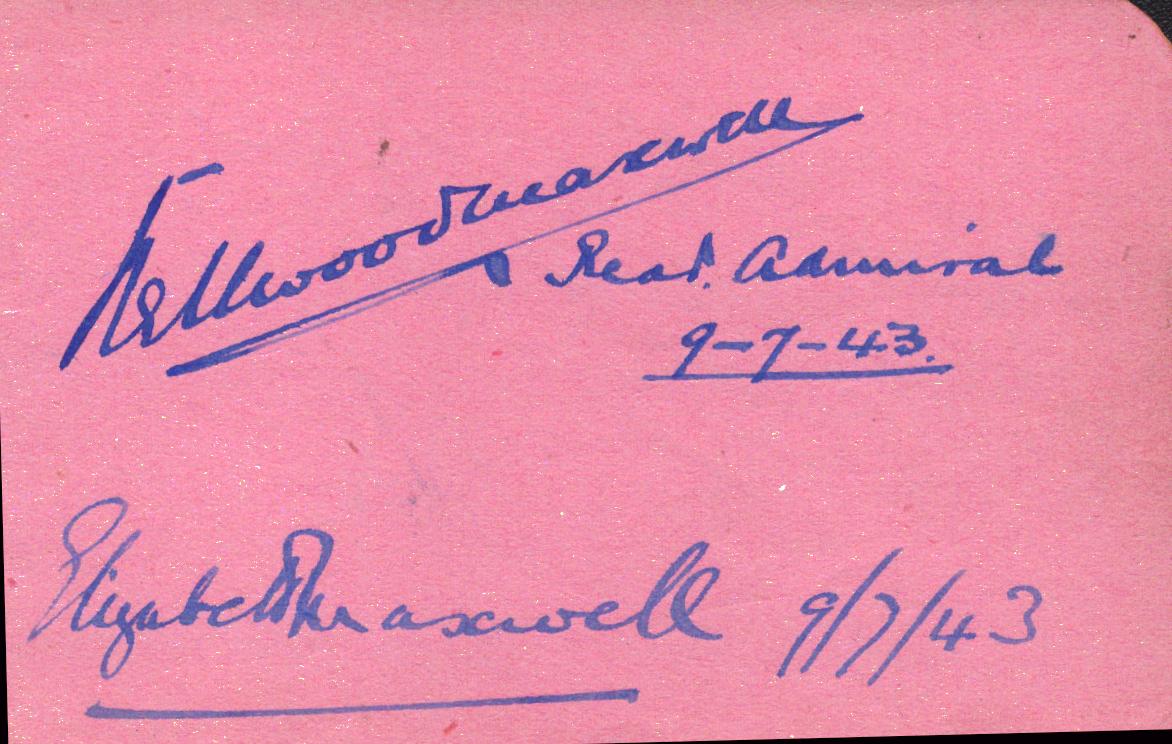 Wellwoodmaxwell
Rear. Admiral
9-7-43.
Elizabeth Maxwell 9/7/43